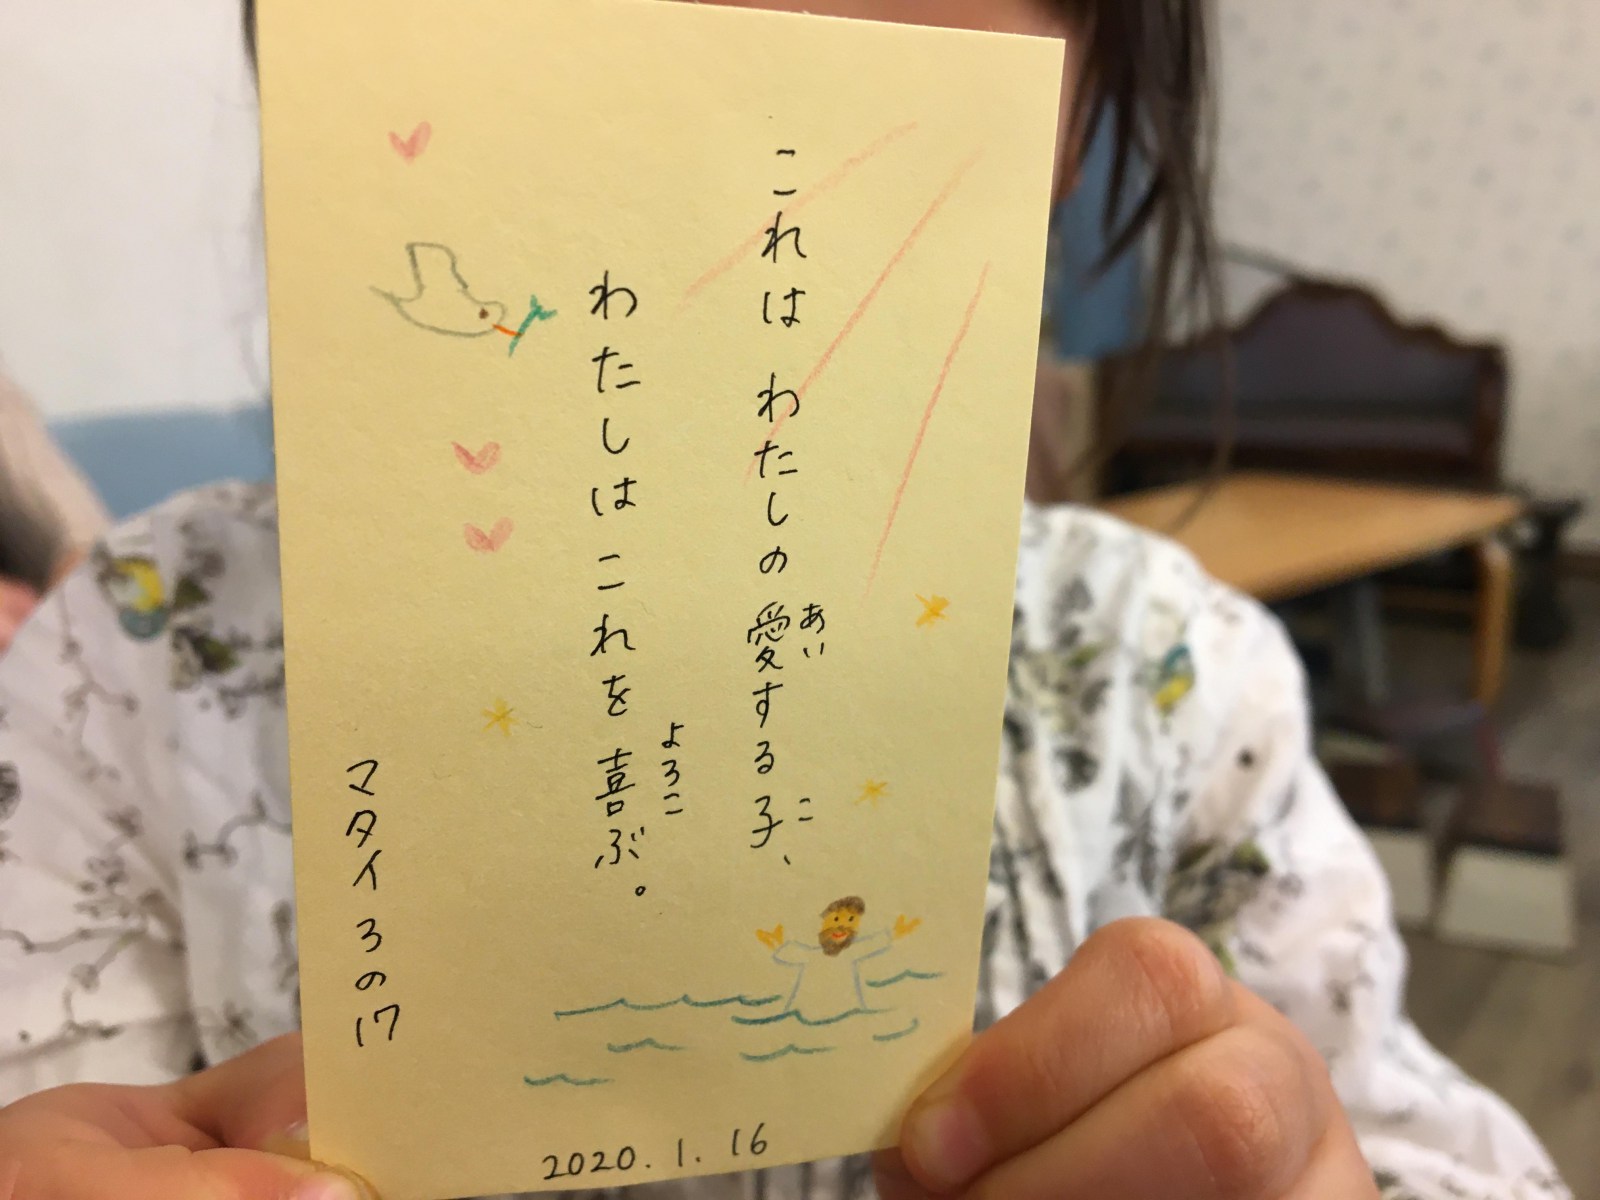 これは わたしの愛する子、
あい
こ
わたしは これを 喜ぶ。
よろこ
マタイ 3の17
2020.1.16